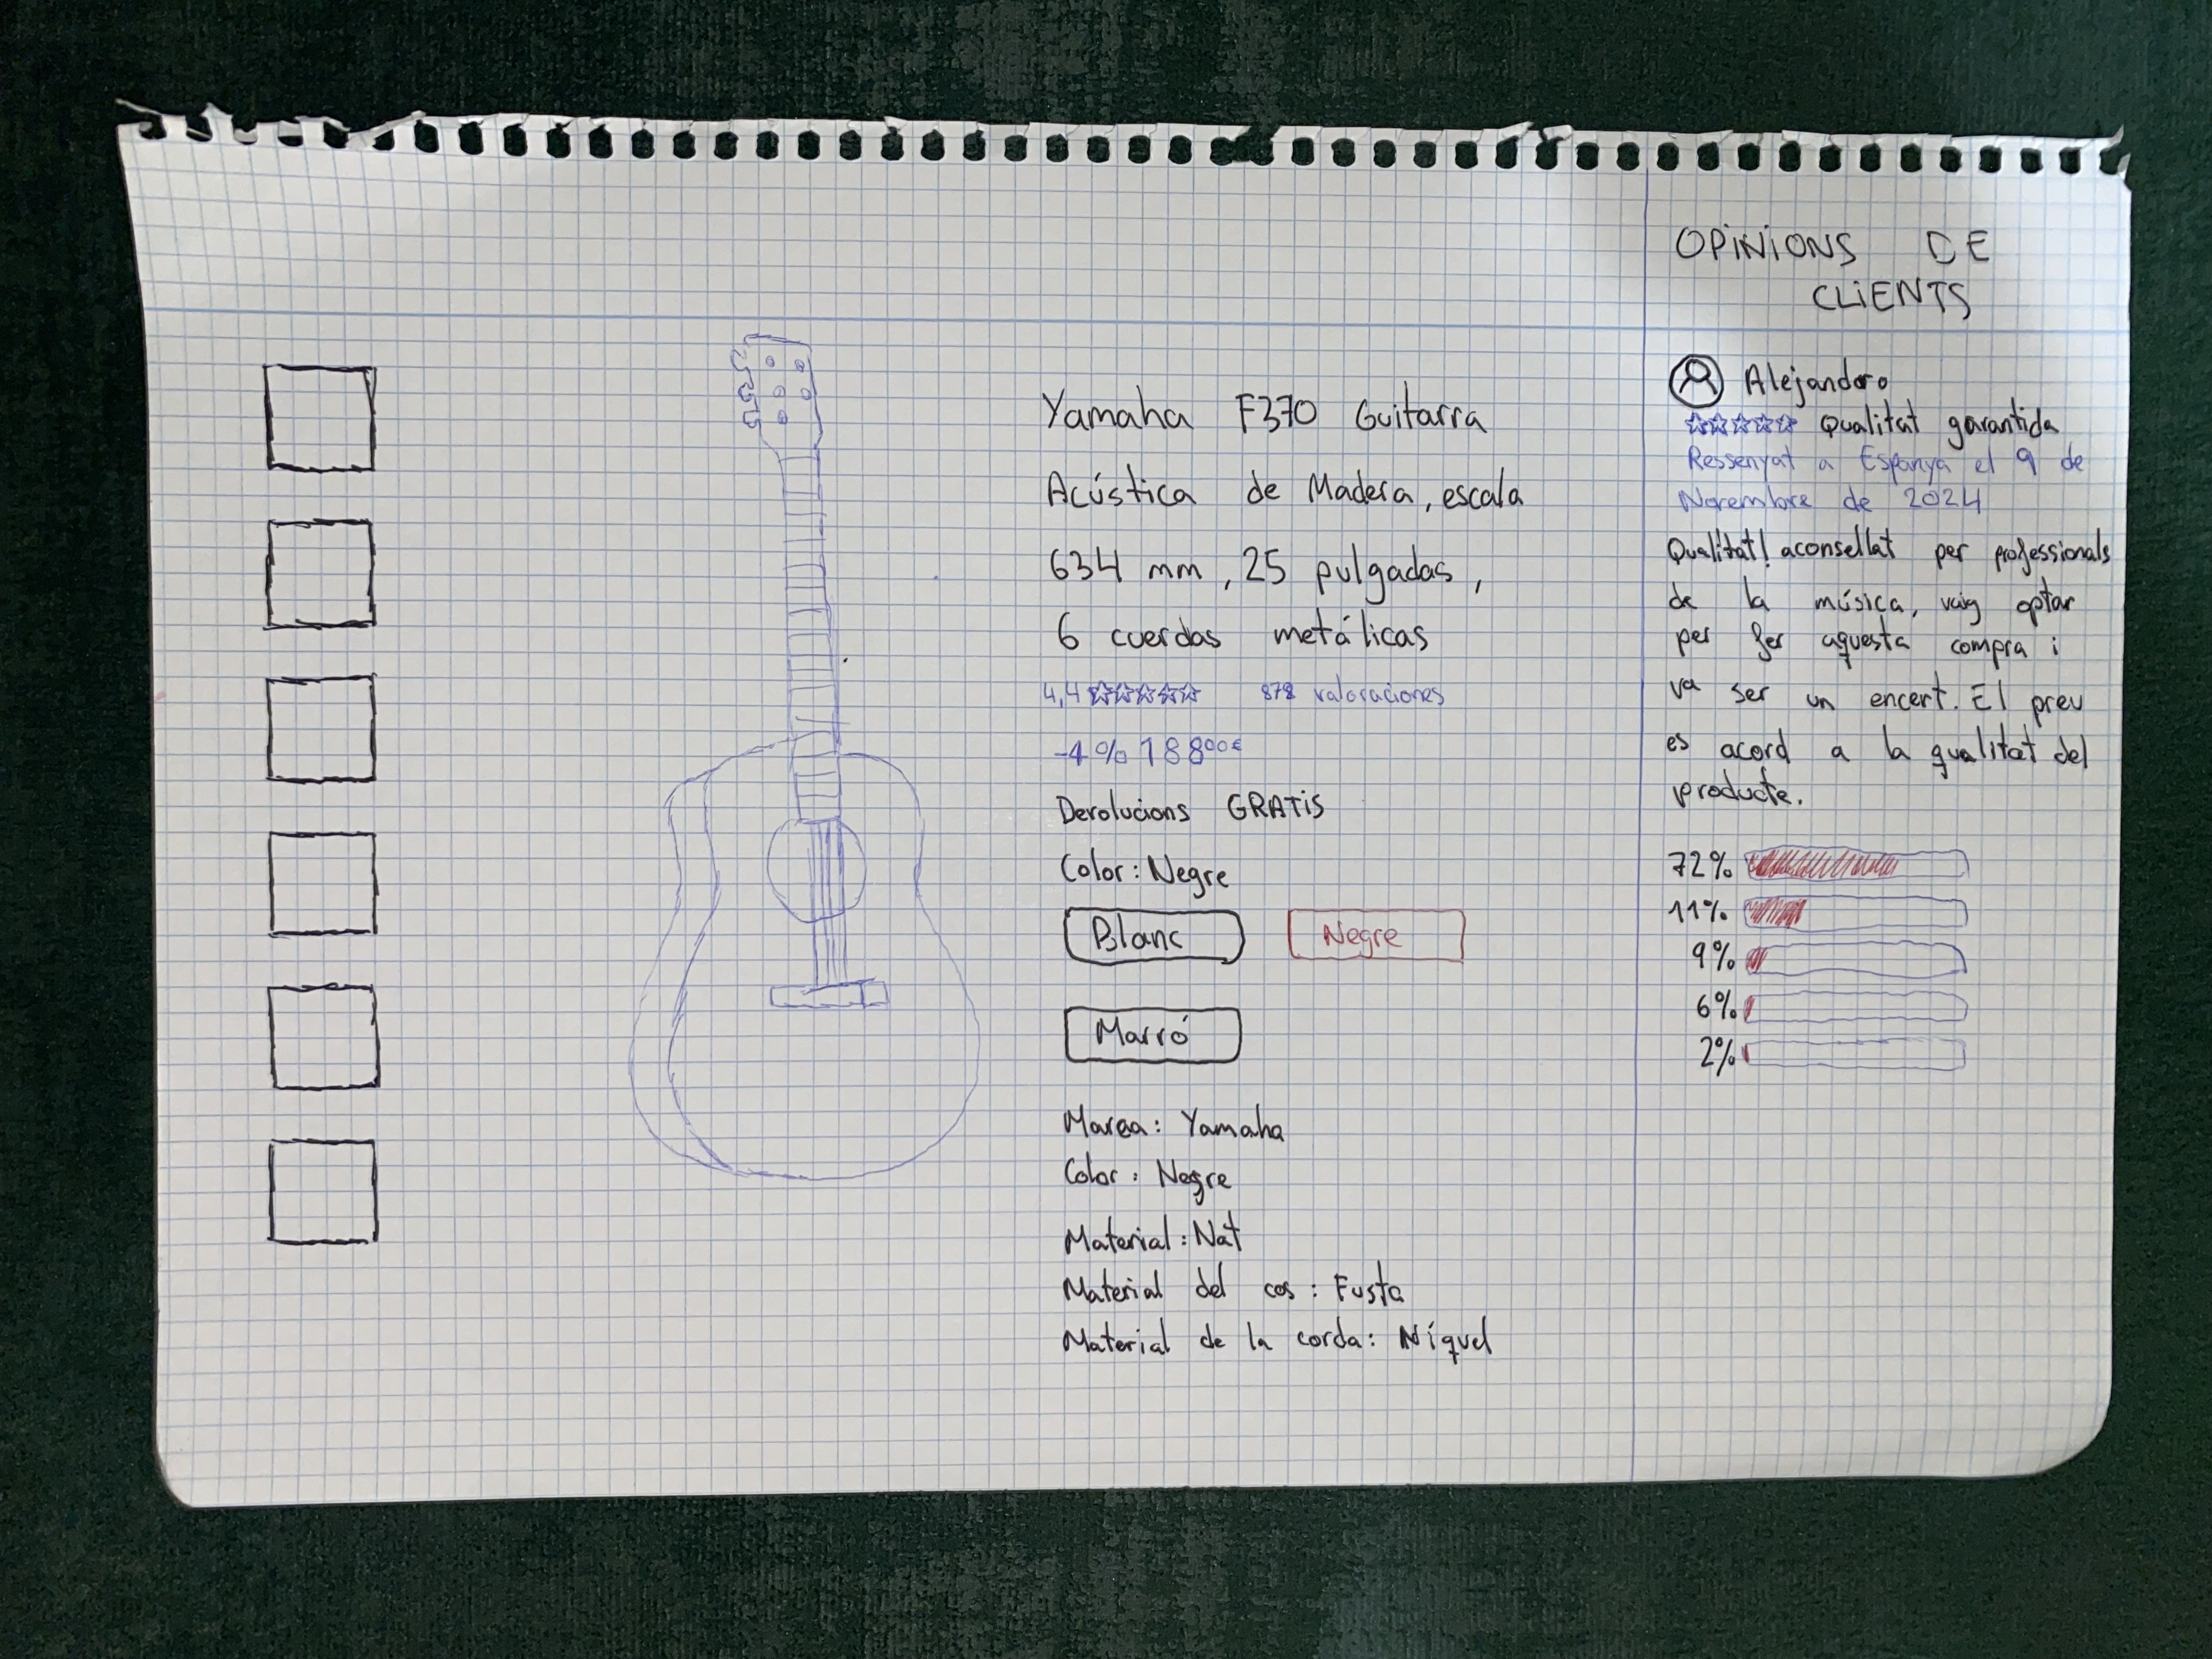 Yamaha F370 Guitarra
Acústica de Madera, escala
634 mm, 25 pulgadas,
6 cuerdas metálicas
4,4 ☆☆☆☆☆ 878 valoraciones
-4% 188⁰⁰€
Devolucions GRATiS
Color: Negre
Blanc
Negre
Marró
Marca: Yamaha
Color: Negre
Material: Nat
Material del cos: Fusta
Material de la corda: Níquel
OPiNiONS DE
CLiENTS
Alejandoro
☆☆☆☆☆ Qualitat garantida
Ressenyat a Espanya el 9 de
Novembre de 2024
Qualitat! aconsellat per professionals
de la música, vaig optar
per fer aquesta compra i
va ser un encert. El preu
es acord a la qualitat del
producte.
72%
11%
9%
6%
2%